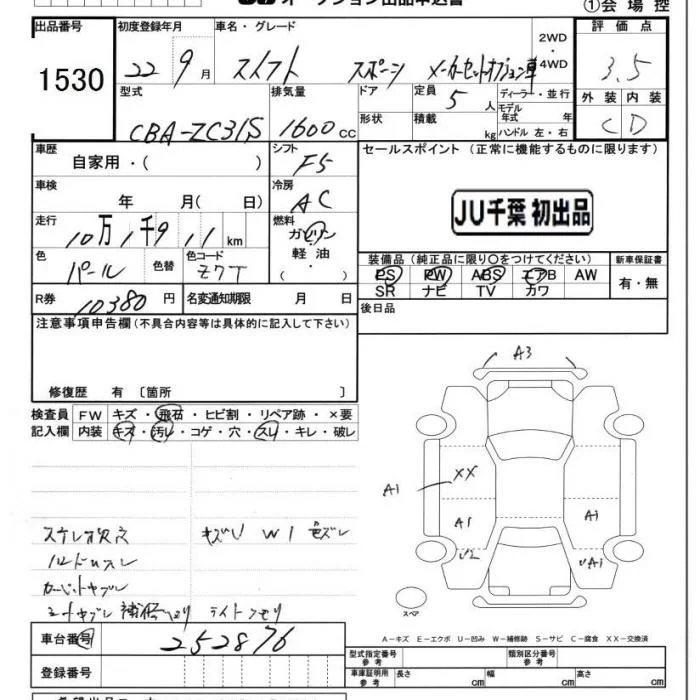 オークション出品申込書 ①会場控
出品番号 初度登録年月 車名・グレード 2WD・4WD 評価点
1530 22年9月 スイフト スポーツ メーカーセットオプション車 3.5
型式 排気量 ドア 定員 5人 ディーラー・並行 外装 内装
CBA-ZC31S 1600cc 形状 積載 kg モデル年式 年 ハンドル 左・右 C D
車歴 シフト セールスポイント(正常に機能するものに限ります)
自家用・( ) F5
車検 冷房
年 月( 日) AC JU千葉 初出品
走行 燃料
10万1千911km ガソリン・軽油・( )
色 色替 色コード 装備品(純正品に限り○をつけてください) 新車保証書
パール Z7T PS PW ABS エアB AW 有・無
SR ナビ TV カワ
R券 10380円 名変通知期限 月 日 後日品
注意事項申告欄(不具合内容等は具体的に記入して下さい)
修復歴 有 〔箇所 〕
検査員 FW キズ・飛石・ヒビ割・リペア跡・×要
記入欄 内装 キズ・汚レ・コゲ・穴・スレ・キレ・破レ
A3
A1 XX
A1 A1
U2 UA1
ステレオ欠 キズU W1 色ズレ
ハンドルスレ
カーペットヨゴレ
シートヨゴレ ライトクモリ
スペア
A-キズ E-エクボ U-凹み W-補修跡 S-サビ C-腐食 XX-交換済
車台番号 252876
登録番号
型式指定番号 参考 類別区分番号 参考
車庫証明用 参考 長さ cm 幅 cm 高さ cm